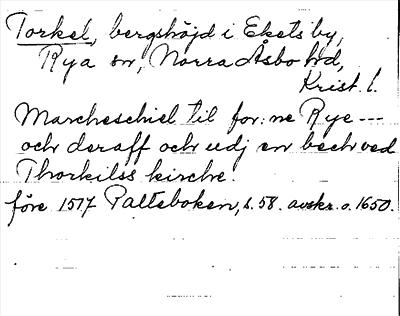 Torkel, bergshöjd i Ekets by,
Rya sn, Norra Åsbo hd,
Krist. l.
Marcheschiel til for: ne Rye ---
och deraff och udj en bech ved
Thorkilss kirche.
före 1517 Palteboken, s. 58. avskr. o. 1650.